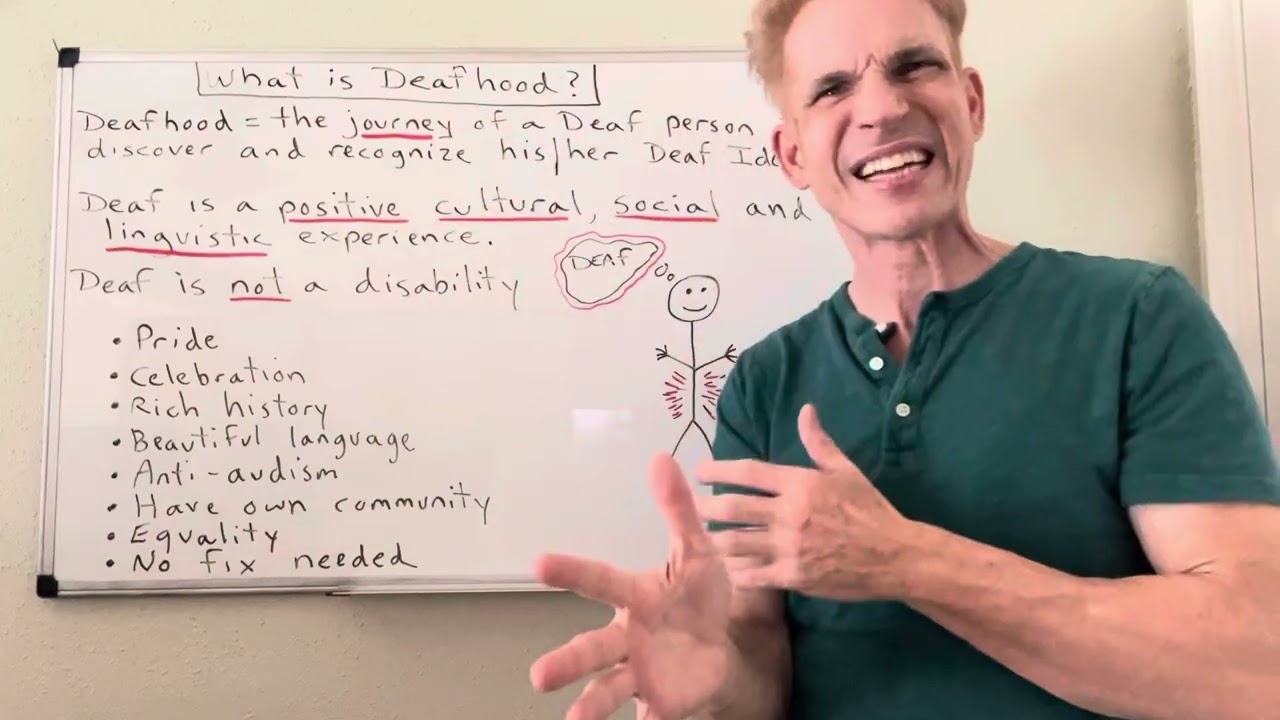 What is Deafhood?
Deafhood = the journey of a Deaf person
discover and recognize his/her Deaf
Deaf is a positive cultural, social and
linguistic experience.
DEAF
Deaf is not a disability
• Pride
• Celebration
• Rich history
• Beautiful language
• Anti-audism
• Have own community
• Equality
• No fix needed